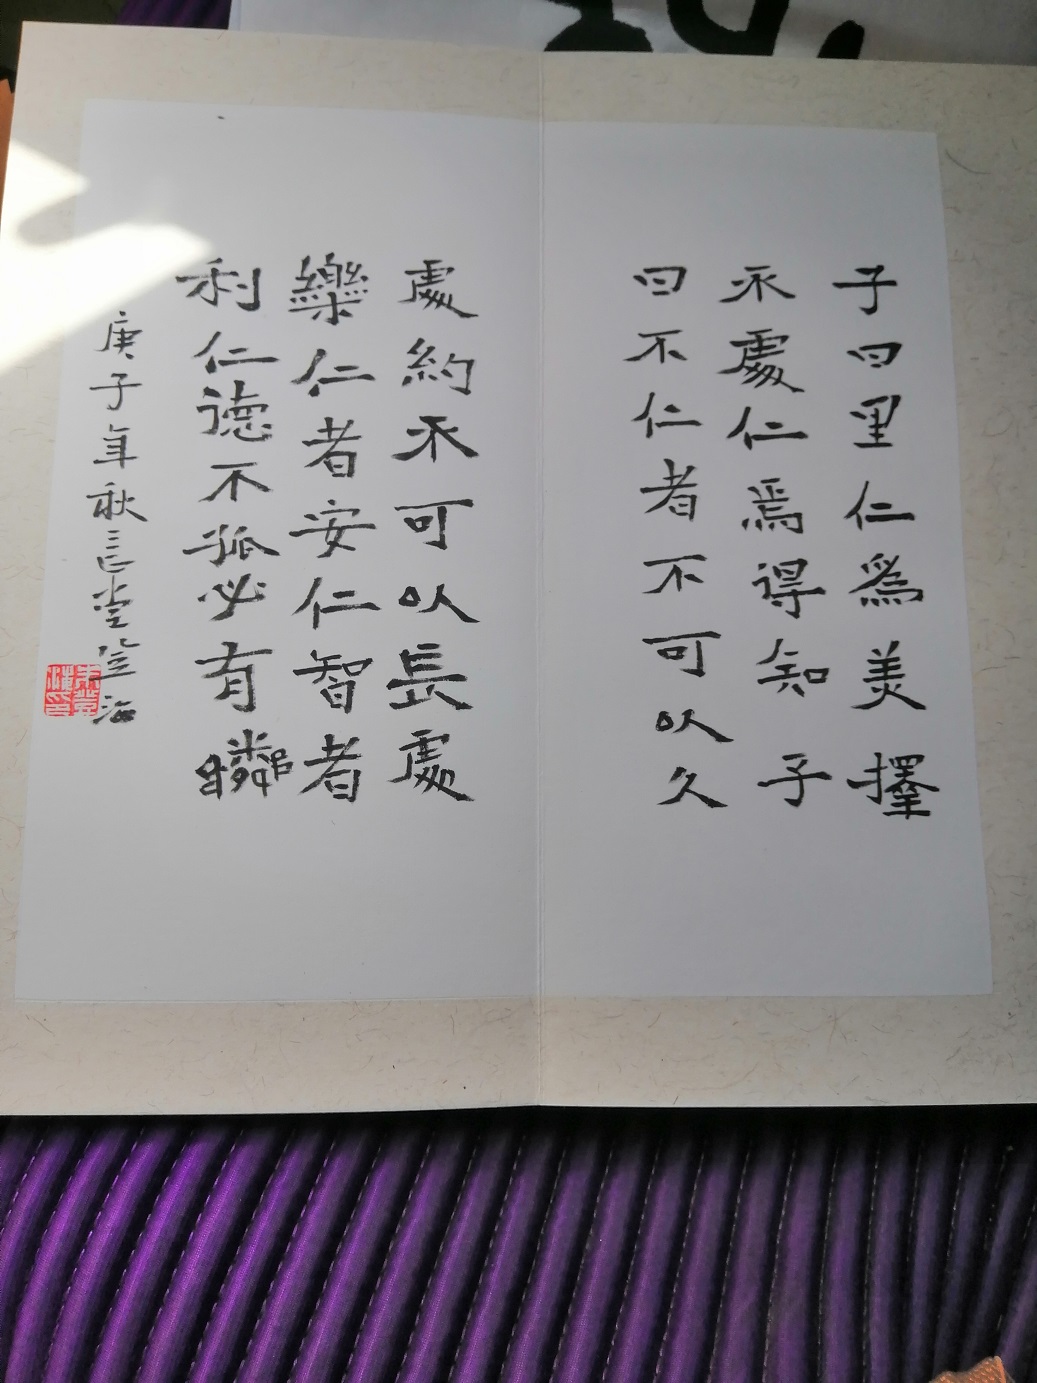 子曰里仁爲美擇
不處仁焉得知子
曰不仁者不可以久
處約不可以長處
樂仁者安仁智者
利仁德不孤必有鄰
庚子年秋